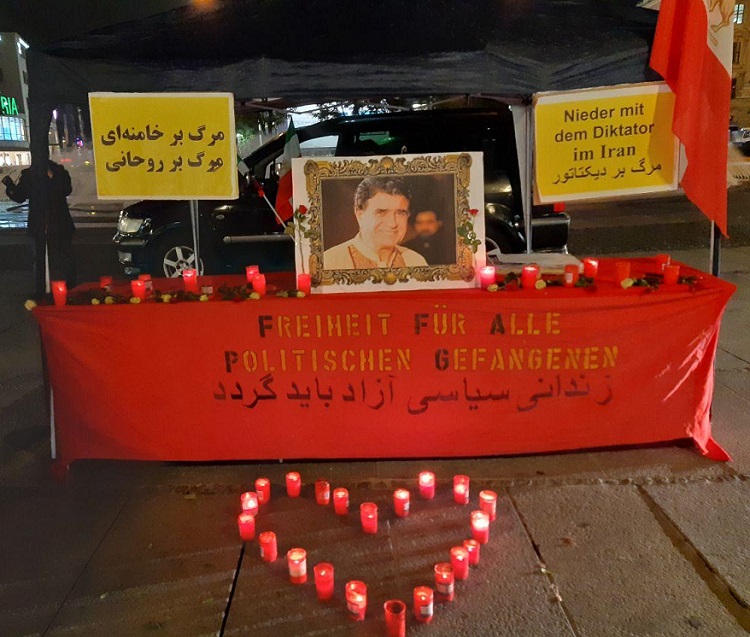 RIA
مرگ بر خامنه‌ای
مرگ بر روحانی
Nieder mit
dem Diktator
im Iran
مرگ بر دیکتاتور
FREIHEIT FÜR ALLE
POLITISCHEN GEFANGENEN
زندانی سیاسی آزاد باید گردد